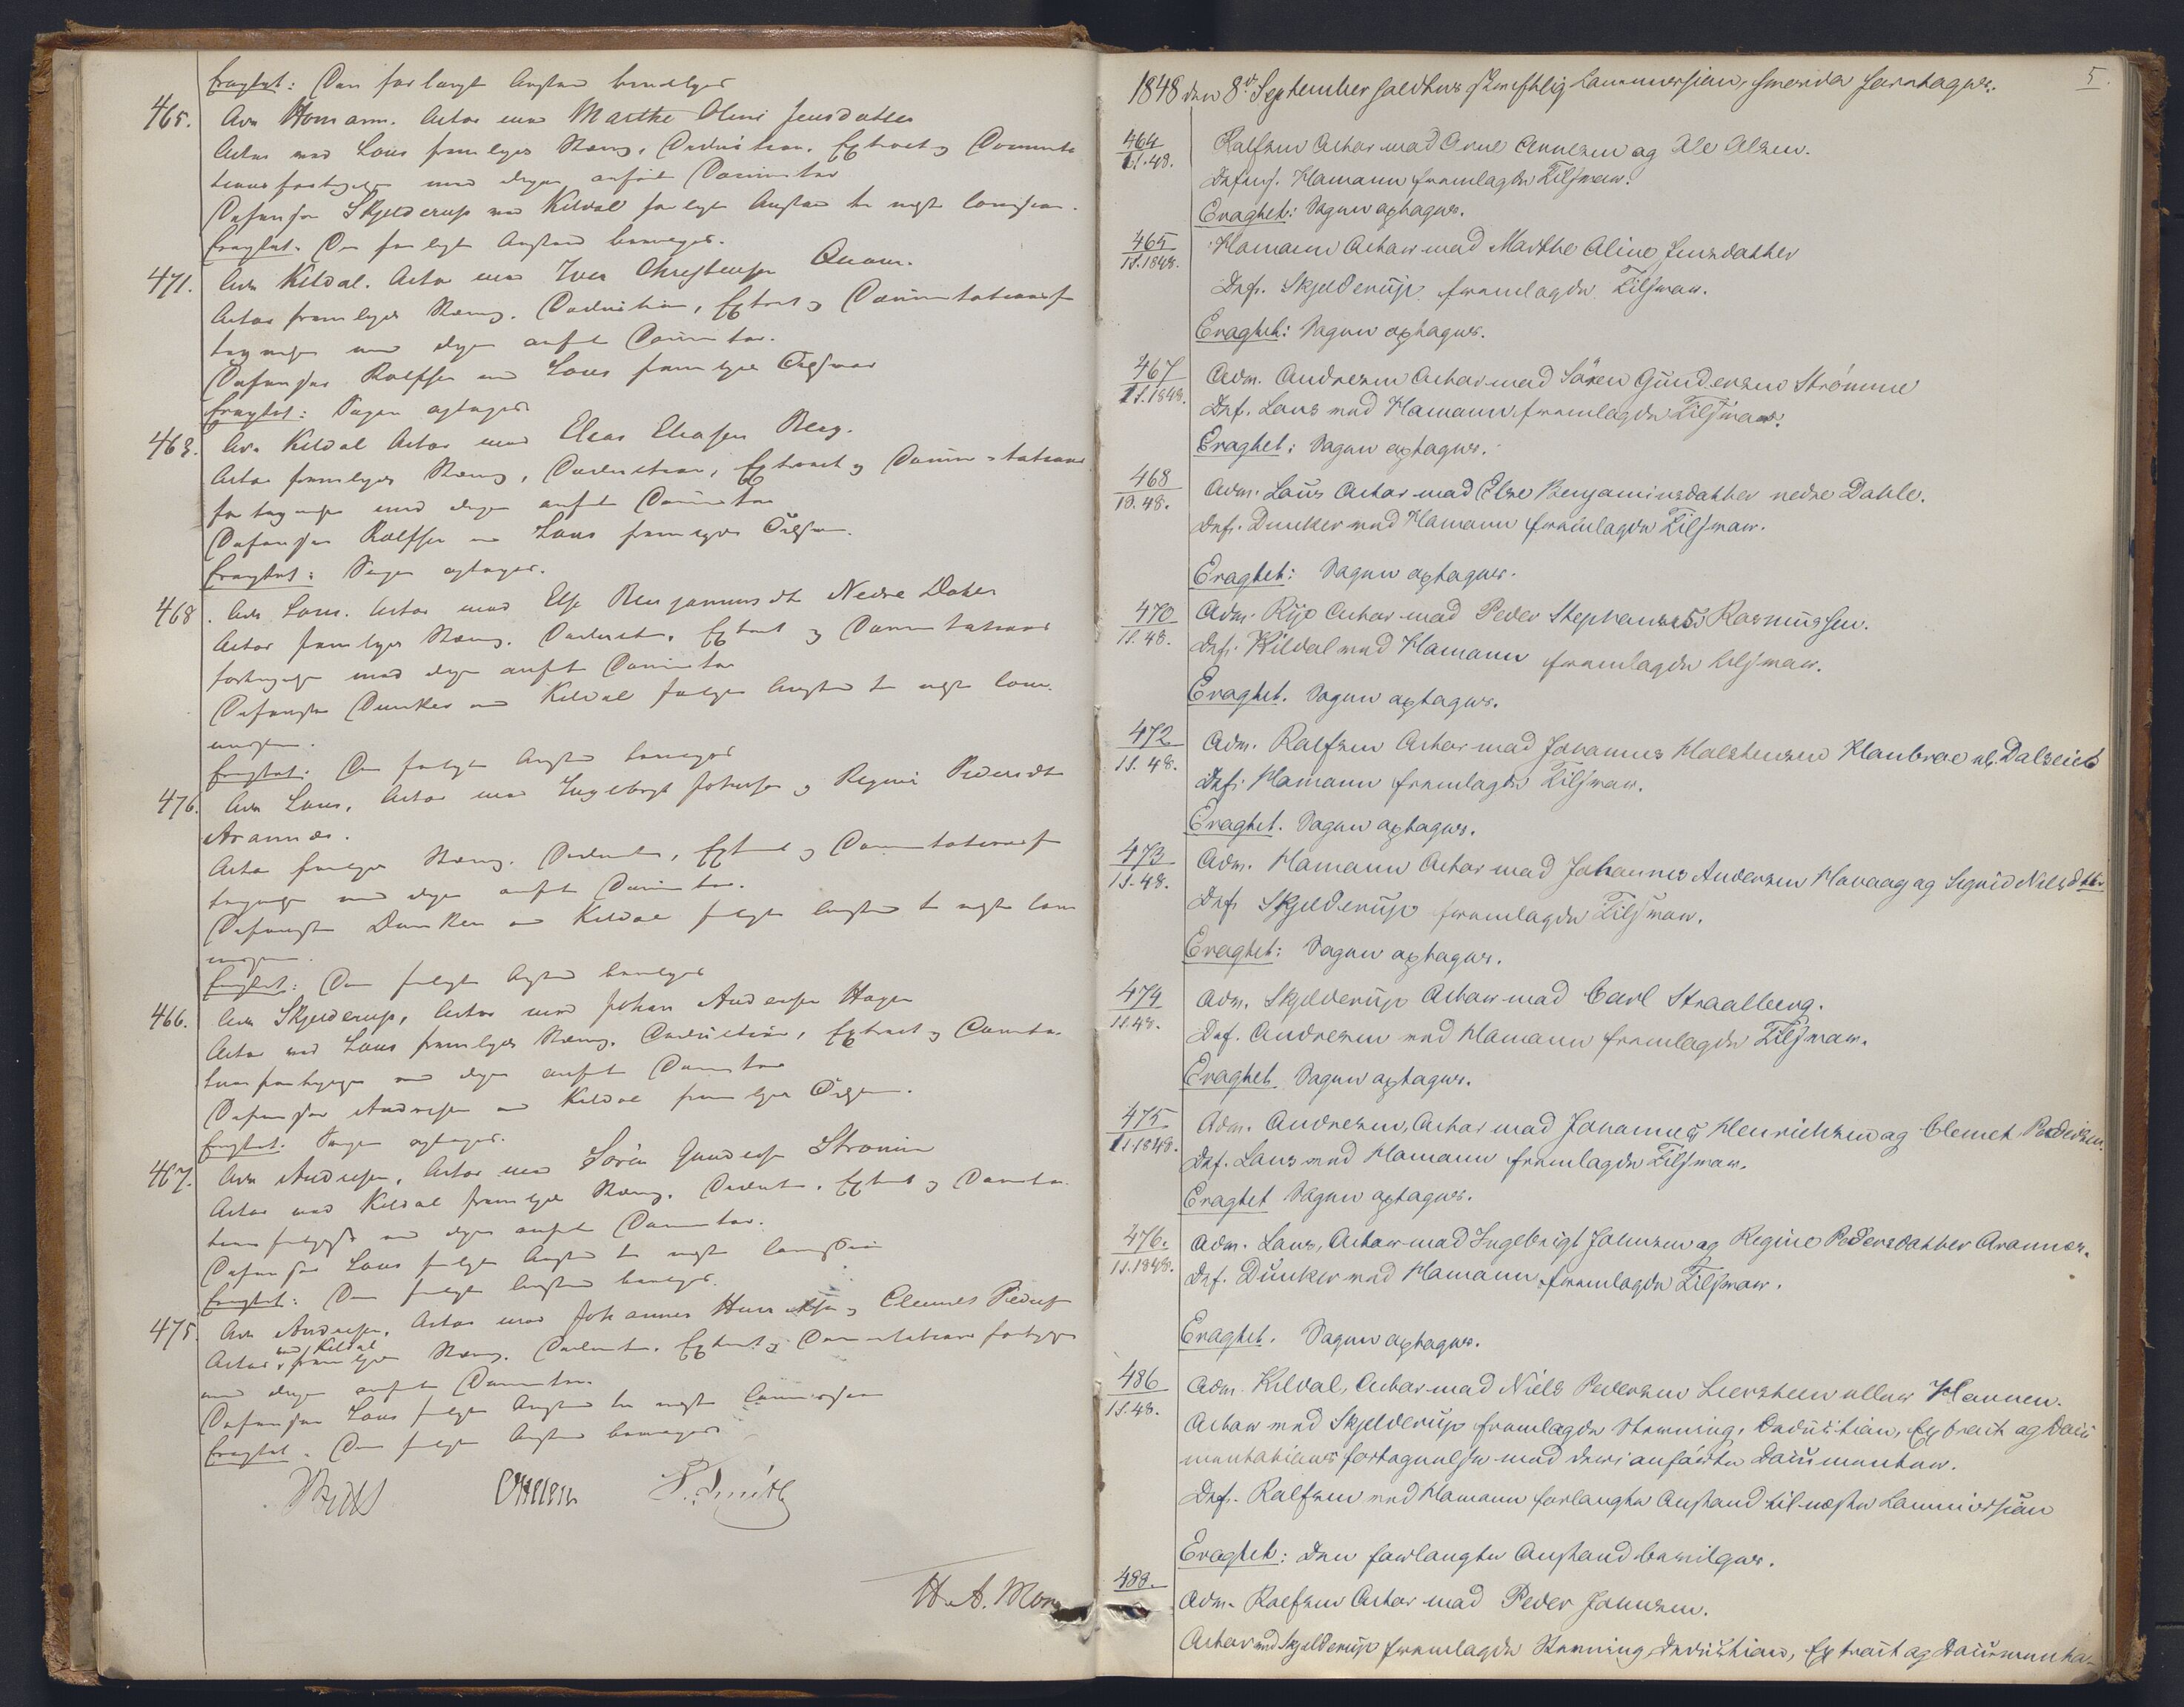 Eragtet: Den forlangte Anstand bevilges
465. Adv. Homann. Actor mod Marthe Oline Jensdatter
Actor ved Lous fremlegger Stevng, Deduction, Extract og Documenta
tionsfortegnelse med deri anførte Documenter
Defensor Skjelderup ved Kildal forlangte Anstand til næste Commission.
Eragtet. Den forlangte Anstand bevilges.
471. Adv. Kildal. Actor mod Iver Christensen Quam.
Actor fremlegger Stevng. Deduction, Extract og Documentationsfor
tegnelse med deri anførte Documenter.
Defensor Rolfsen ved Lous fremlegger Tilsvar
Eragtet: Sagen optages
463. Adv. Kildal Actor mod Elias Eliasen Berg.
Actor fremlegger Stevng, Deduction, Extract og Documentations
fortegnelse med deri anførte Documenter
Defensor Rolfsen ved Lous fremlegger Tilsvar.
Eragtet: Sagen optages.
468. Adv. Lous. Actor mod Else Benjaminsdtr Nedre Dahle
Actor fremlegger Stevng. Deduction, Extract og Documentations
fortegnelse med deri anførte Documenter
Defensor Dunker ved Kildal forlangte Anstand til næste Com-
mission.
Eragtet: Den forlangte Anstand bevilges
476. Adv. Lous, Actor mod Ingebrigt Johnsen og Regine Pedersdtr
Aramnæs.
Actor fremlegger Stevng. Deduction, Extract og Documentationsfor
tegnelse med deri anførte Documenter.
Defensor Dunker ved Kildal forlangte Anstand til næste Com
mission.
Eragtet: Den forlangte Anstand bevilges
466. Adv. Skjelderup, Actor mod Johan Andersen Hagen
Actor ved Lous fremlegger Stevng. Deduction, Extract og Documenta
tionsfortegnelse med deri anførte Documenter
Defensor Andresen ved Kildal fremlegger Tilsvar.
Eragtet: Sagen optages.
467. Adv. Andresen, Actor mod Sören Gundersen Strömme
Actor ved Kildal fremlegger Stevng. Deduction, Extract og Documenta
tionsfortegnelse med deri anførte Documenter.
Defensor Lous forlangte Anstand til næste Commission
Eragtet: Den forlangte Anstand bevilges.
475. Adv. Andresen, Actor mod Johannes Henriksen og Clemet Pedersen
Actor ved Kildal fremlegger Stevng. Deduction, Extract og Documentationsfortegnelse
med deri anførte Documenter.
Defensor Lous forlangte Anstand til næste Commission
Eragtet. Den forlangte Anstand bevilges
P. Smith
H. A. Mor
5.
1848 den 8de September holdtes skriftlig Commission, hvorda foretages:
464
1/S.48. Rolfsen Actor mod Arne Arnesen og Ole Olsen.
Defens. Hamann fremlagde Tilsvar.
Eragtet: Sagen optages.
465
1S.1848. Hamann Actor mod Marthe Oline Jensdatter
Def. Skjelderup fremlagde Tilsvar.
Eragtet: Sagen optages.
467
1S.1848. Adv. Andresen Actor mod Sören Gundersen Strömme
Def. Lous ved Hamann fremlagde Tilsvar.
Eragtet: Sagen optages.
468
1S.48. Adv. Lous Actor mod Else Benjaminsdatter nedre Dahle.
Def. Dunker ved Hamann fremlagde Tilsvar.
Eragtet: Sagen optages.
470
1S.48. Adv. Rye Actor mod Peder Stephanus Rasmussen.
Def. Kildal ved Hamann fremlagde Tilsvar.
Eragtet. Sagen optages.
472
1S.48. Adv. Rolfsen Actor mod Johannes Halstensen Haubroe el. Dalseiet
Def. Hamann fremlagde Tilsvar.
Eragtet. Sagen optages.
473
1S.48. Adv. Hamann Actor mod Johannes Andersen Havaag og Sigrid Nielsdtter
Def. Skjelderup fremlagde Tilsvar.
Eragtet: Sagen optages.
474
1S.48. Adv. Skjelderup Actor mod Carl Straalberg.
Def. Andresen ved Hamann fremlagde Tilsvar.
Eragtet Sagen optages.
475
1S.1848. Adv. Andresen, Actor mod Johannes Henrichsen og Clemet Pedersen.
Def. Lous ved Hamann fremlagde Tilsvar.
Eragtet Sagen optages.
476.
1S.1848. Adv. Lous, Actor mod Ingebrigt Johnsen og Regine Pedersdatter Aramnæs.
Def. Dunker ved Hamann fremlagde Tilsvar.
Eragtet. Sagen optages.
486
1S.48. Adv. Kildal, Actor mod Niels Pedersen Leersteen eller Haunen.
Actor ved Skjelderup fremlagde Stevning, Deduction, Extract og Docu
mentationsfortegnelse med deri anførte Documenter.
Def. Rolfsen ved Hamann forlangte Anstand til næste Commission
Eragtet: Den forlangte Anstand bevilges.
488.
Adv. Rolfsen Actor mod Peder Johnsen.
Actor ved Skjelderup fremlagde Stevning, Deduction, Extract og Documenta-